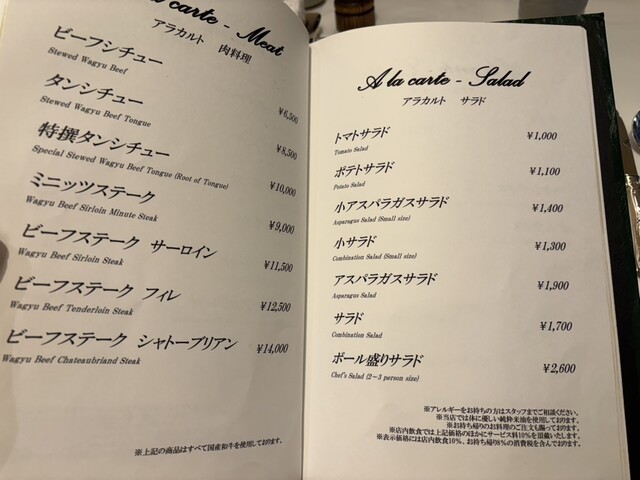 A la carte - Meat
アラカルト 肉料理
ビーフシチュー
Stewed Wagyu Beef
¥6,500
タンシチュー
Stewed Wagyu Beef Tongue
¥8,500
特撰タンシチュー
Special Stewed Wagyu Beef Tongue (Root of Tongue)
¥10,000
ミニッツステーク
Wagyu Beef Sirloin Minute Steak
¥9,000
ビーフステーク サーロイン
Wagyu Beef Sirloin Steak
¥11,500
ビーフステーク フィレ
Wagyu Beef Tenderloin Steak
¥12,500
ビーフステーク シャトーブリアン
Wagyu Beef Chateaubriand Steak
¥14,000
※上記の商品はすべて国産和牛を使用しております。
A la carte - Salad
アラカルト サラド
トマトサラド ¥1,000
Tomato Salad
ポテトサラド ¥1,100
Potato Salad
小アスパラガスサラド ¥1,400
Asparagus Salad (Small size)
小サラド ¥1,300
Combination Salad (Small size)
アスパラガスサラド ¥1,900
Asparagus Salad
サラド ¥1,700
Combination Salad
ボール盛りサラド ¥2,600
Chef's Salad (2～3 person size)
※アレルギーをお持ちの方はスタッフまでご相談ください。
※当店では体に優しい純粋米油を使用しております。
※お持ち帰りのお料理のご注文も賜っております。
※店内飲食では上記価格のほかにサービス料10%を頂戴いたします。
※表示価格には店内飲食10%、お持ち帰り8%の消費税を含んでおります。